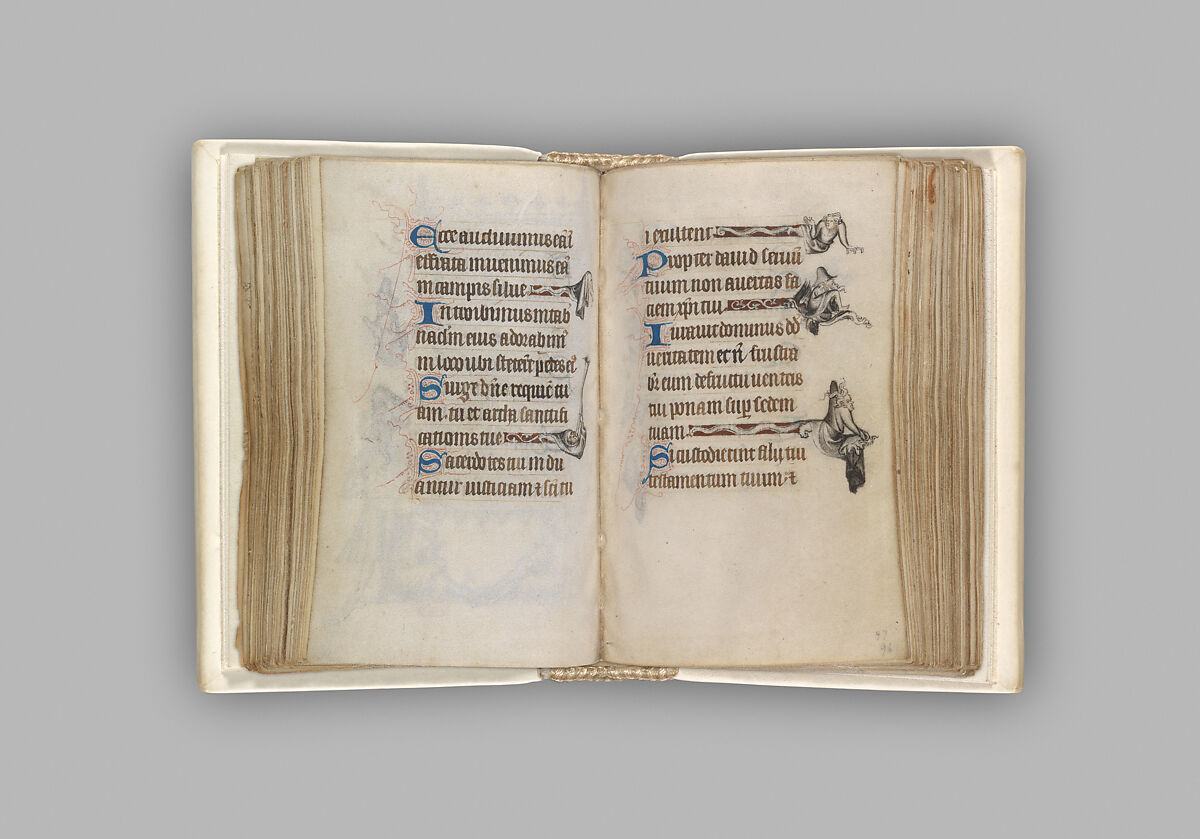 Ecce audiuimus eã i
effrata inuenimus eã
in campis silue
Introibimus in tab
naclm eius adorabim
in loco ubi steterũt pedes ei
Surge dñe in requiẽ tu
am. tu et archa sanctifi
cationis tue
Sacerdotes tui indu
antur iusticiam ⁊ sci tu
i exultent
Propter dauid seruũ
tuum non auertas fa
ciem xp̃i tui
Iurauit dominus dd
ueritatem et ñ frustra
bʼ eum de fructu uentris
tui ponam sup̲ sedem
tuam
Si custodierint filij tui
testamentum tuum ⁊
97
96